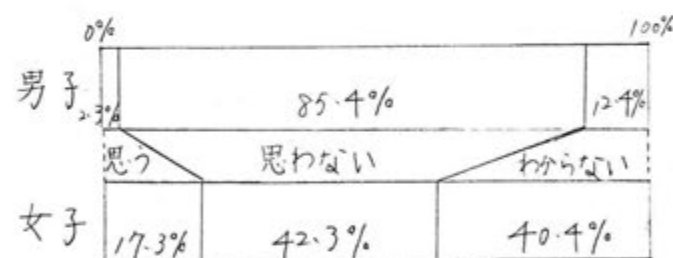 0% 100%
男子 2.3% 85.4% 12.4%
思う 思わない わからない
女子 17.3% 42.3% 40.4%